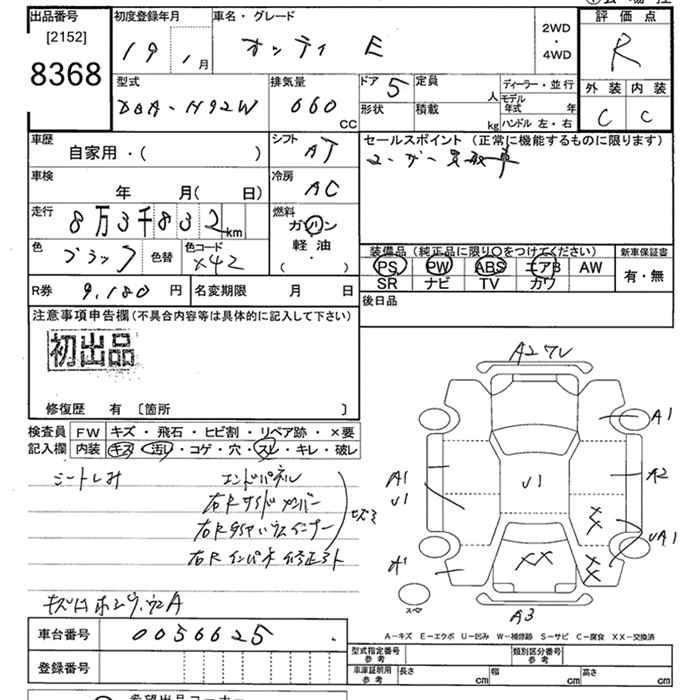 出品番号 初度登録年月 車名・グレード 評価点
[2152]
8368
19. 1月 オッティ E 2WD・4WD R
型式 排気量 ドア 5 定員 人 ディーラー・並行 外装 内装
DBA-H92W 660CC 形状 積載 kg モデル年式 年 C C
ハンドル 左・右
車歴 自家用・( ) シフト AT セールスポイント (正常に機能するものに限ります)
ユーザー買取車
車検 年 月( 日) 冷房 AC
走行 8万3千832km 燃料 ガソリン 軽油・( )
色 ブラック 色替 色コード X42
装備品(純正品に限り〇をつけてください) 新車保証書
PS PW ABS エアB AW 有・無
SR ナビ TV カワ
R券 9,180円 名変期限 月 日 後日品
注意事項申告欄(不具合内容等は具体的に記入して下さい)
初出品
修復歴 有 [箇所 ]
検査員 FW キズ・飛石・ヒビ割・リペア跡・×要
記入欄 内装 キズ・汚レ・コゲ・穴・スレ・キレ・破レ
シートしみ エンドパネル
右Rサイドメンバー
右Rタイヤハウスインナー
右Rインパネ修正跡
A2 ワレ
A1
A1
U1
U1
A2
XX
UA1
A1
XX
XX
スペア
A3
A-キズ E-エクボ U-凹み W-補修跡 S-サビ C-腐食 XX-交換済
車台番号 0056625
登録番号
型式指定番号 参考 類別区分番号 参考
車庫証明用 参考 長さ cm 幅 cm 高さ cm
希望出品コーナー